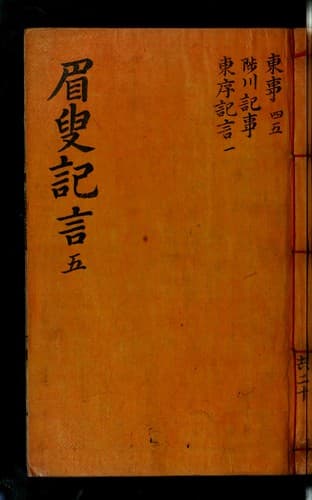 東事 四五
陟川記事
東序記言 一
眉叟記言 五
共二十